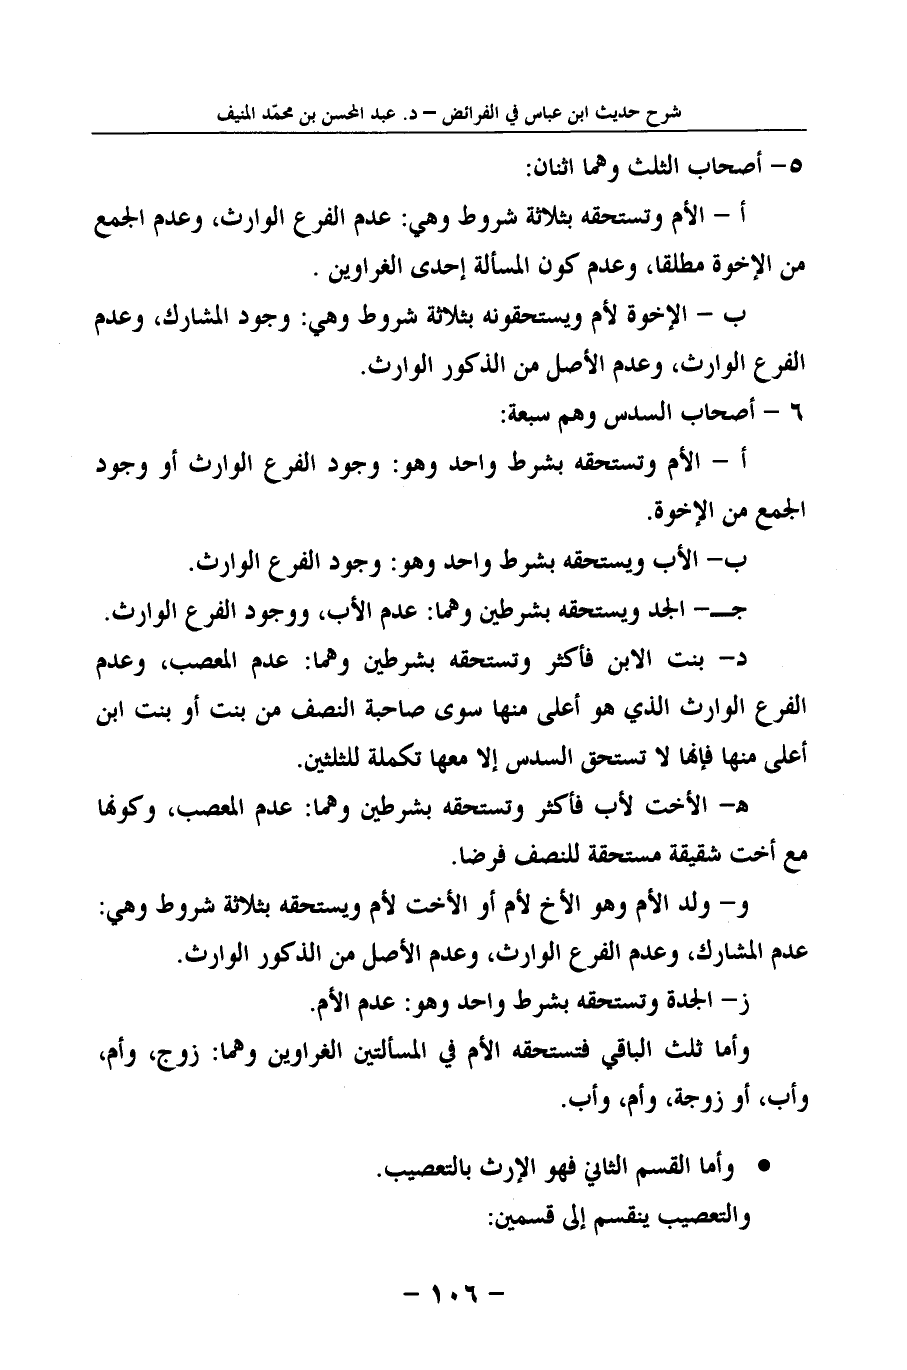 شرح حديث ابن عباس في الفرائض – د. عبد المحسن بن محمّد المنيف
٥– أصحاب الثلث وهما اثنان:
أ – الأم وتستحقه بثلاثة شروط وهي: عدم الفرع الوارث، وعدم الجمع
من الإخوة مطلقا، وعدم كون المسألة إحدى الغراوين .
ب – الإخوة لأم ويستحقونه بثلاثة شروط وهي: وجود المشارك، وعدم
الفرع الوارث، وعدم الأصل من الذكور الوارث.
٦ – أصحاب السدس وهم سبعة:
أ – الأم وتستحقه بشرط واحد وهو: وجود الفرع الوارث أو وجود
الجمع من الإخوة.
ب– الأب ويستحقه بشرط واحد وهو: وجود الفرع الوارث.
جــ– الجد ويستحقه بشرطين وهما: عدم الأب، ووجود الفرع الوارث.
د– بنت الابن فأكثر وتستحقه بشرطين وهما: عدم المعصب، وعدم
الفرع الوارث الذي هو أعلى منها سوى صاحبة النصف من بنت أو بنت ابن
أعلى منها فإنها لا تستحق السدس إلا معها تكملة للثلثين.
هـ– الأخت لأب فأكثر وتستحقه بشرطين وهما: عدم المعصب، وكونها
مع أخت شقيقة مستحقة للنصف فرضا.
و– ولد الأم وهو الأخ لأم أو الأخت لأم ويستحقه بثلاثة شروط وهي:
عدم المشارك، وعدم الفرع الوارث، وعدم الأصل من الذكور الوارث.
ز– الجدة وتستحقه بشرط واحد وهو: عدم الأم.
وأما ثلث الباقي فتستحقه الأم في المسألتين الغراوين وهما: زوج، وأم،
وأب، أو زوجة، وأم، وأب.
• وأما القسم الثاني فهو الإرث بالتعصيب.
والتعصيب ينقسم إلى قسمين:
– ١٠٦ –